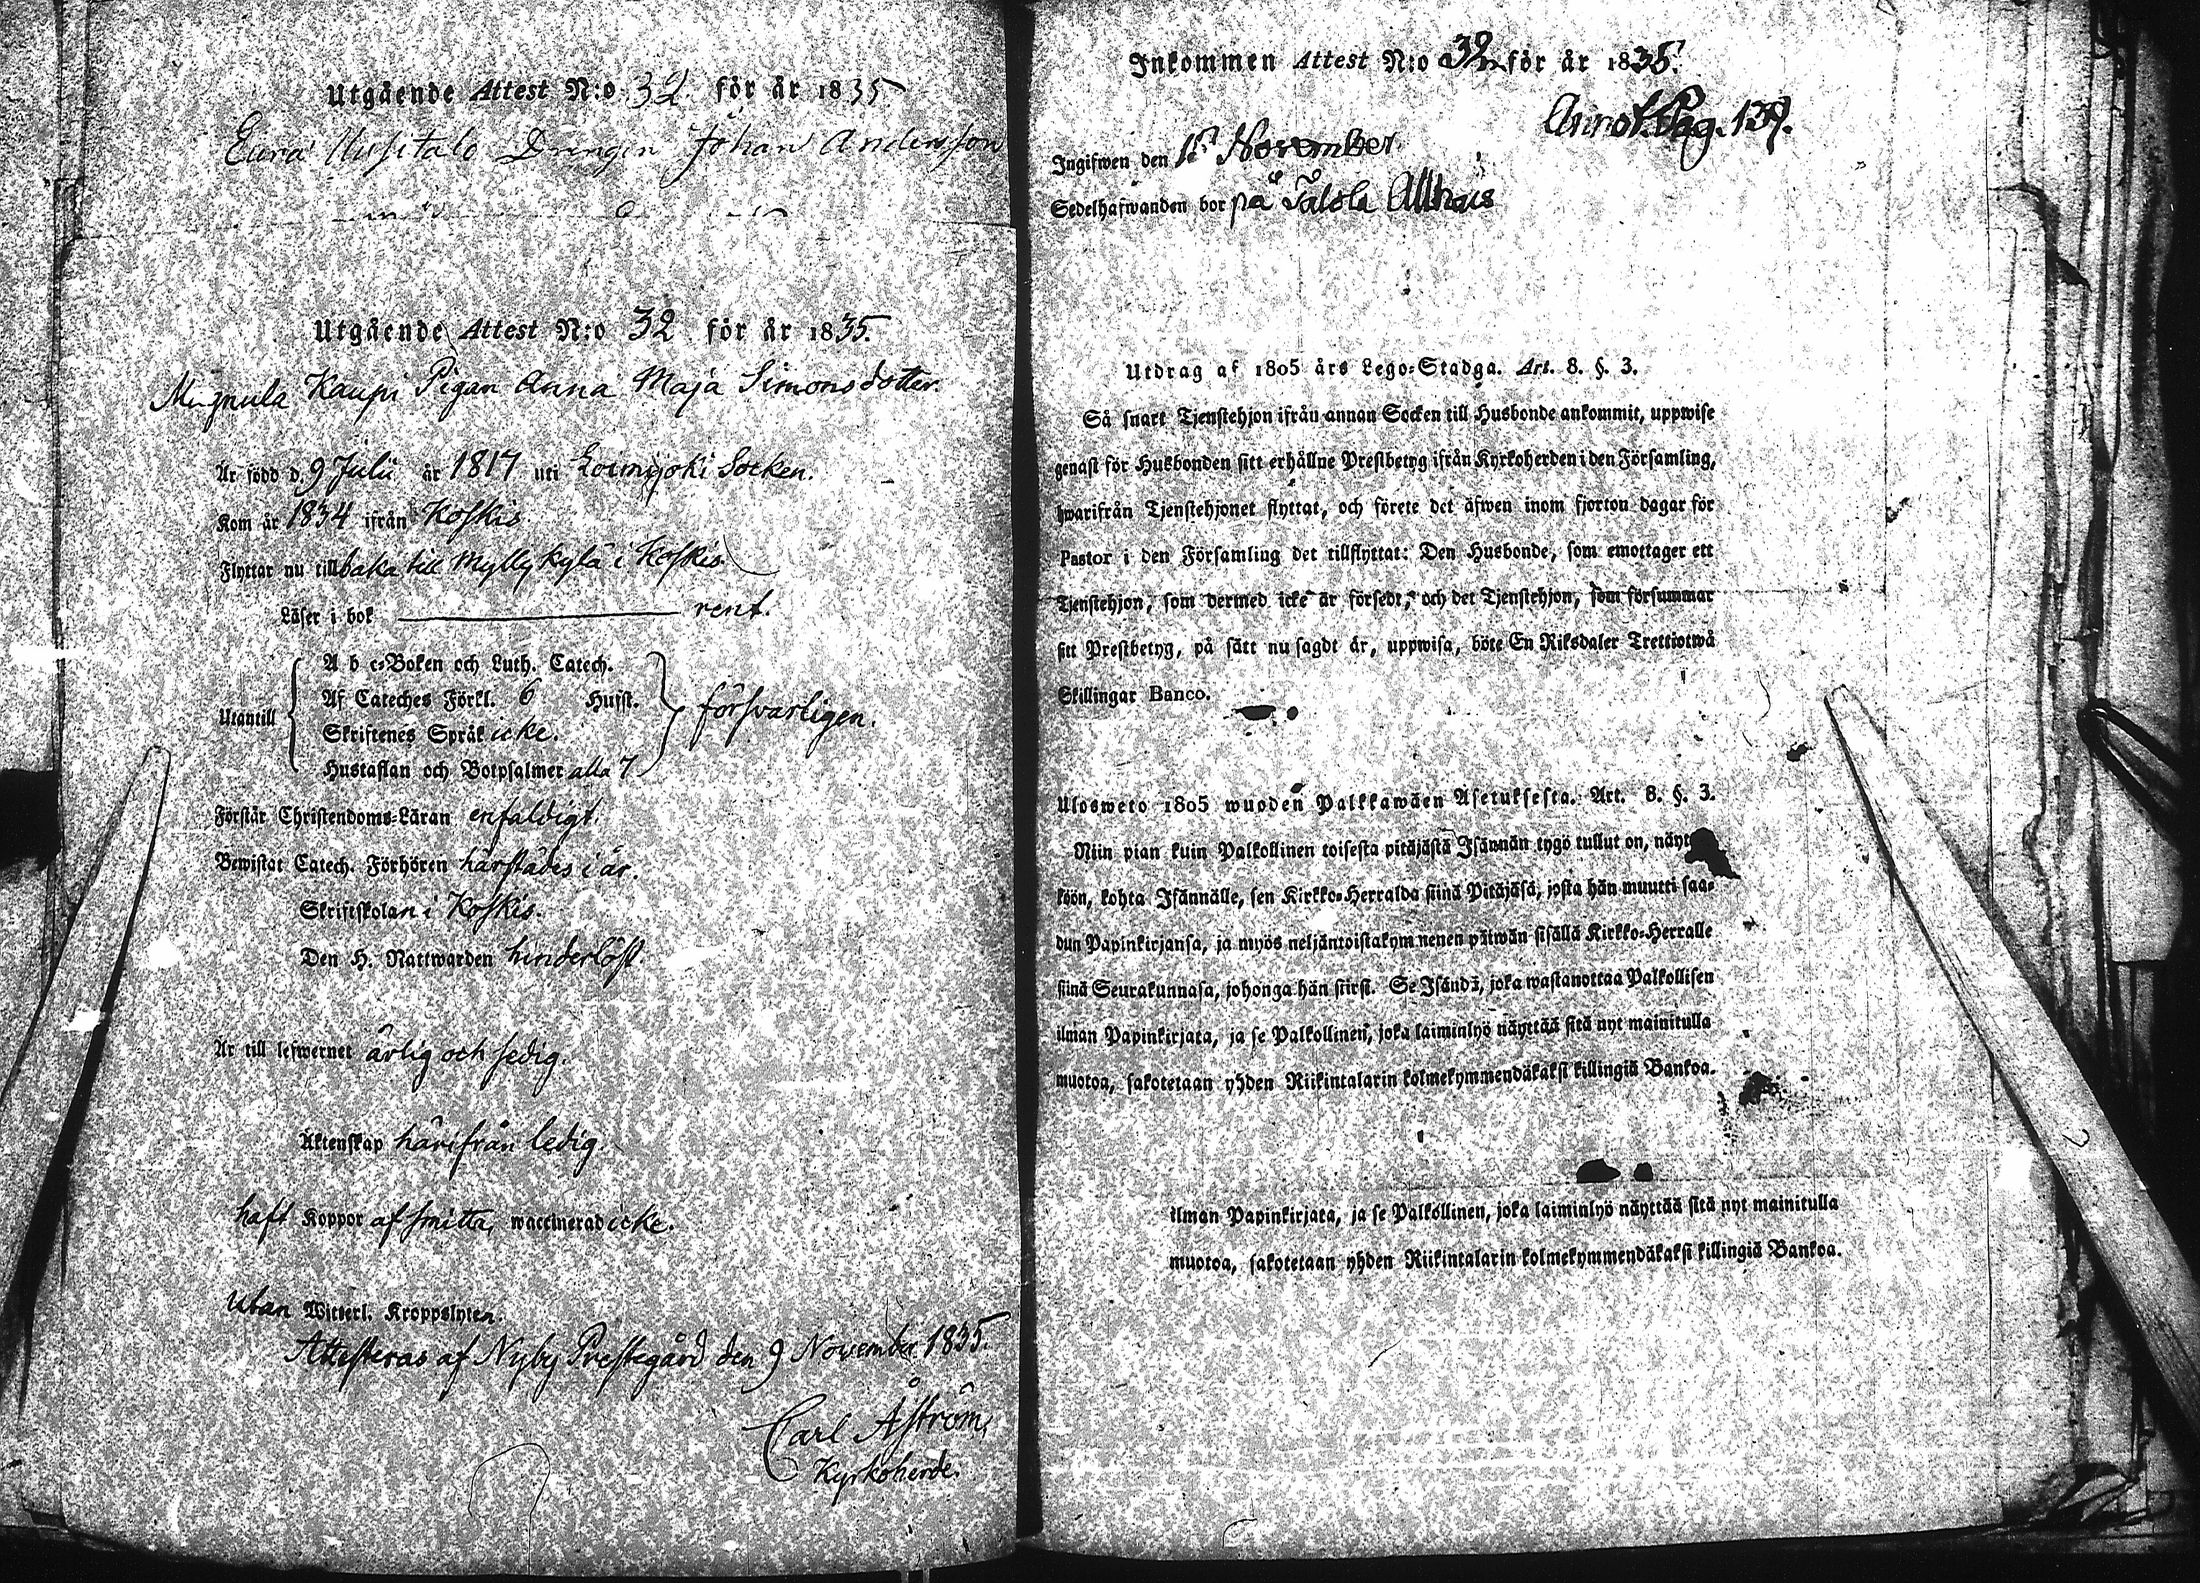 Utgående Attest N:o 32. för år 1835
Eura Drängen Johan Andersson
Utgående Attest N:o 32 för år 1835.
Kaupi Pigan Anna Maja Simonsdotter.
Är född d. 9 Julii år 1817 uti Loimijoki Socken.
Kom år 1834 ifrån Koskis.
Flyttar nu tillbaka till Myllykylä i Koskis.
Läser i bok rent.
A b c-Boken och Luth. Catech.
Af Cateches Förkl. 6 Hufst.
Utantill försvarligen.
Skriftenes Språk icke.
Hustaflan och Botpsalmer alla 7
Förstår Christendoms-Läran enfaldigt.
Bewistat Catech. Förhören härstädes i år.
Skriftskolan i Koskis.
Den H. Nattwarden hinderlöst.
Är till lefwernet ärlig och sedig.
Äktenskap härifrån ledig.
haft Koppor af smitta, waccinerad icke.
utan Witterl. Kroppslyten.
Attesteras af Nyby Prestegård den 9 November 1835.
Carl Åström,
Kyrkoherde.
Inkommen Attest N:o 32 för år 1835.
Annot. Pag. 139.
Ingifwen den November
Sedelhafwanden bor på
Utdrag af 1805 års Lego-Stadga. Art. 8. §. 3.
Så snart Tjenstehjon ifrån annan Socken till Husbonde ankommit, uppwise
genast för Husbonden sitt erhållne Prestbetyg ifrån Kyrkoherden i den Församling,
hwarifrån Tjenstehjonet flyttat, och förete det äfwen inom fjorton dagar för
Pastor i den Församling det tillflyttat: Den Husbonde, som emottager ett
Tjenstehjon, som dermed icke är försedt, och det Tjenstehjon, som försummar
sitt Prestbetyg, på sätt nu sagdt är, uppwisa, böte En Riksdaler Trettiotwå
Skillingar Banco.
Ulosweto 1805 wuoden Palkkawäen Asetuksesta. Art. 8. §. 3.
Niin pian kuin Palkollinen toisesta pitäjästä Isännän tygö tullut on, näyt-
köön, kohta Isännälle, sen Kirkko-Herralda siinä Pitäjäsä, josta hän muutti saa-
dun Papinkirjansa, ja myös neljäntoistakymmenen päiwän sisällä Kirkko-Herralle
siinä Seurakunnasa, johonga hän siirsi. Se Isändä, joka wastanottaa Palkollisen
ilman Papinkirjata, ja se Palkollinen, joka laiminlyö näyttää sitä nyt mainitulla
muotoa, sakotetaan yhden Riikintalarin kolmekymmendäkaksi killingiä Bankoa.
ilman Papinkirjata, ja se Palkollinen, joka laiminlyö näyttää sitä nyt mainitulla
muotoa, sakotetaan yhden Riikintalarin kolmekymmendäkaksi killingiä Bankoa.